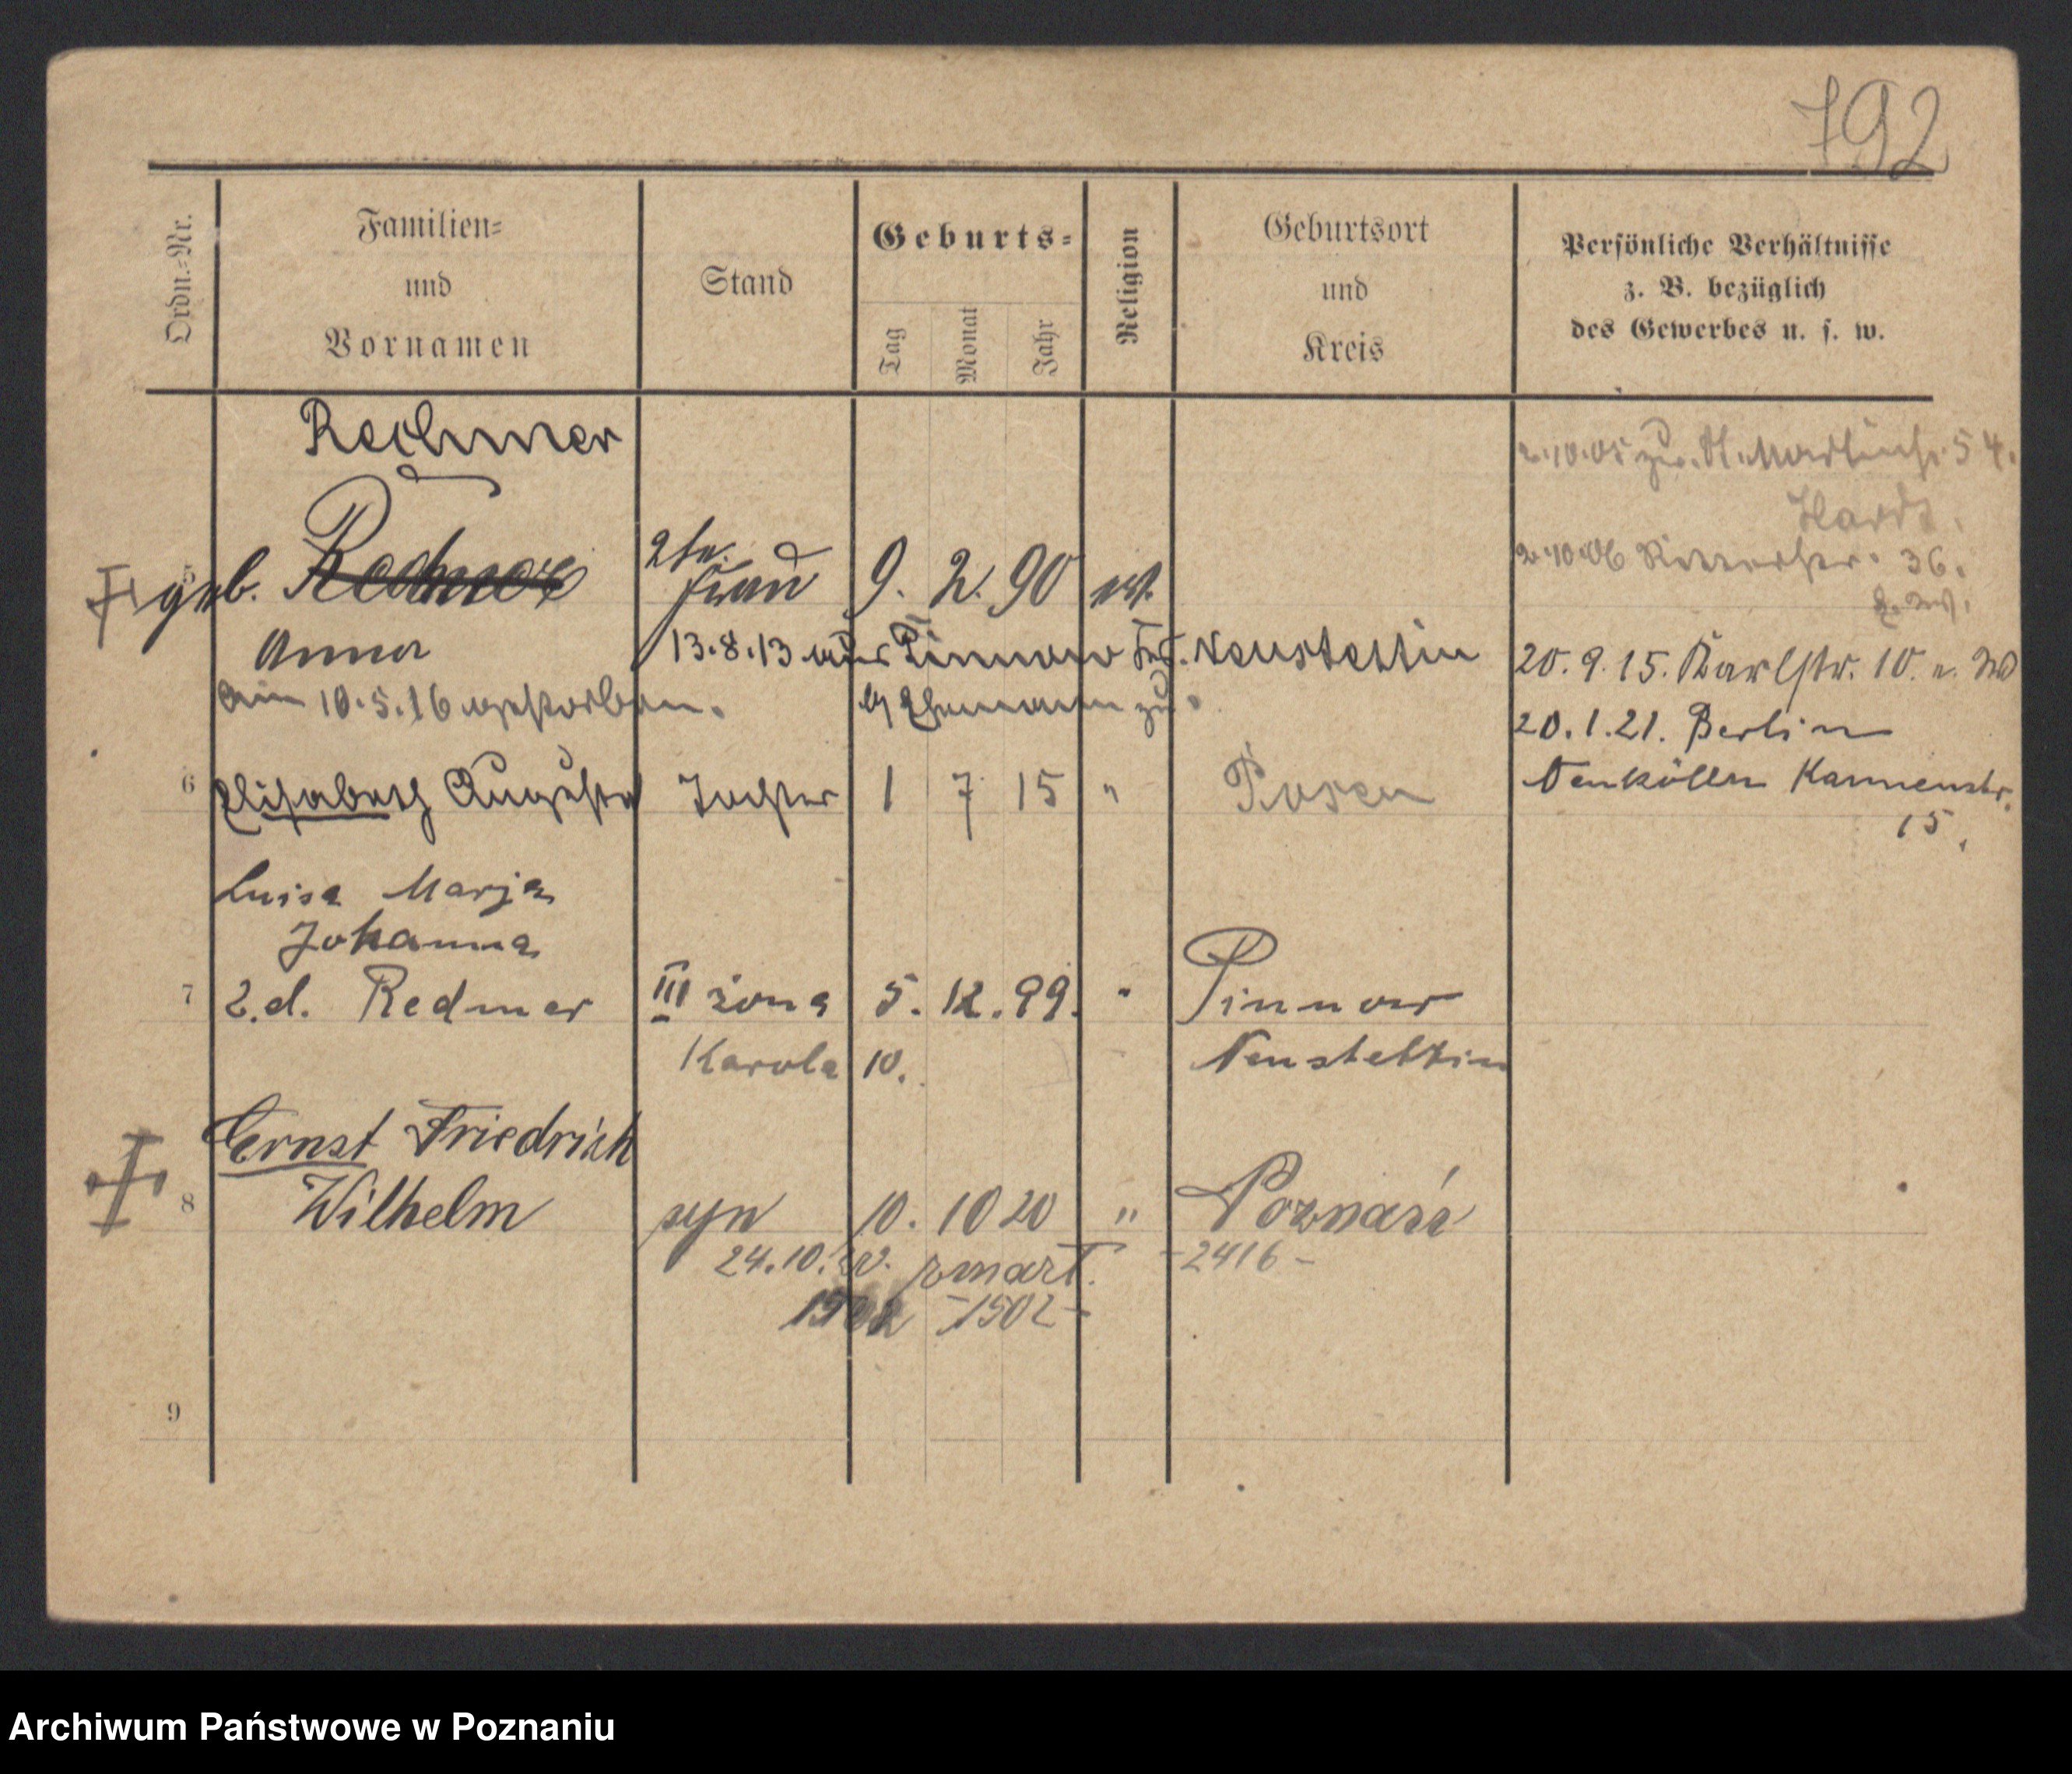 792
Ordn.-Nr.
Familien-
und
Vornamen
Stand
Geburts-
Tag
Monat
Jahr
Religion
Geburtsort
und
Kreis
Persönliche Verhältnisse
z. B. bezüglich
des Gewerbes u. s. w.
Redmer
2.10.05 zu. St. Martinstr. 54.
2.10.06 Ritterstr. 36.
geb. Redmer 2te. Frau 9. 2. 90 ev.
Anna 13.8.13 aus Pinnow Neustettin
20.9.15. Karlstr. 10.
am 10.5.16 gestorben. Ehemann zu.
20.1.21. Berlin
6 Elisabeth Augusta Tochter 1 7 15 " Posen
Neukölln Kannerstr.
15.
Luisa Marja
Johanna
7 z.d. Redmer III żona 5. 12. 99. " Pinnow
Karola 10. Neustettin
Ernst Friedrich
8 Wilhelm syn 10. 10 20 " Poznań
24.10. zmarł. -2416-
1502 -1502-
9
Archiwum Państwowe w Poznaniu